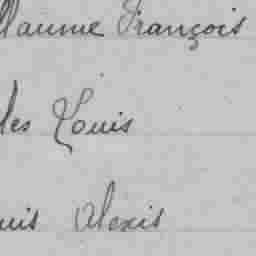 llaume François
les Louis
uis Alexis